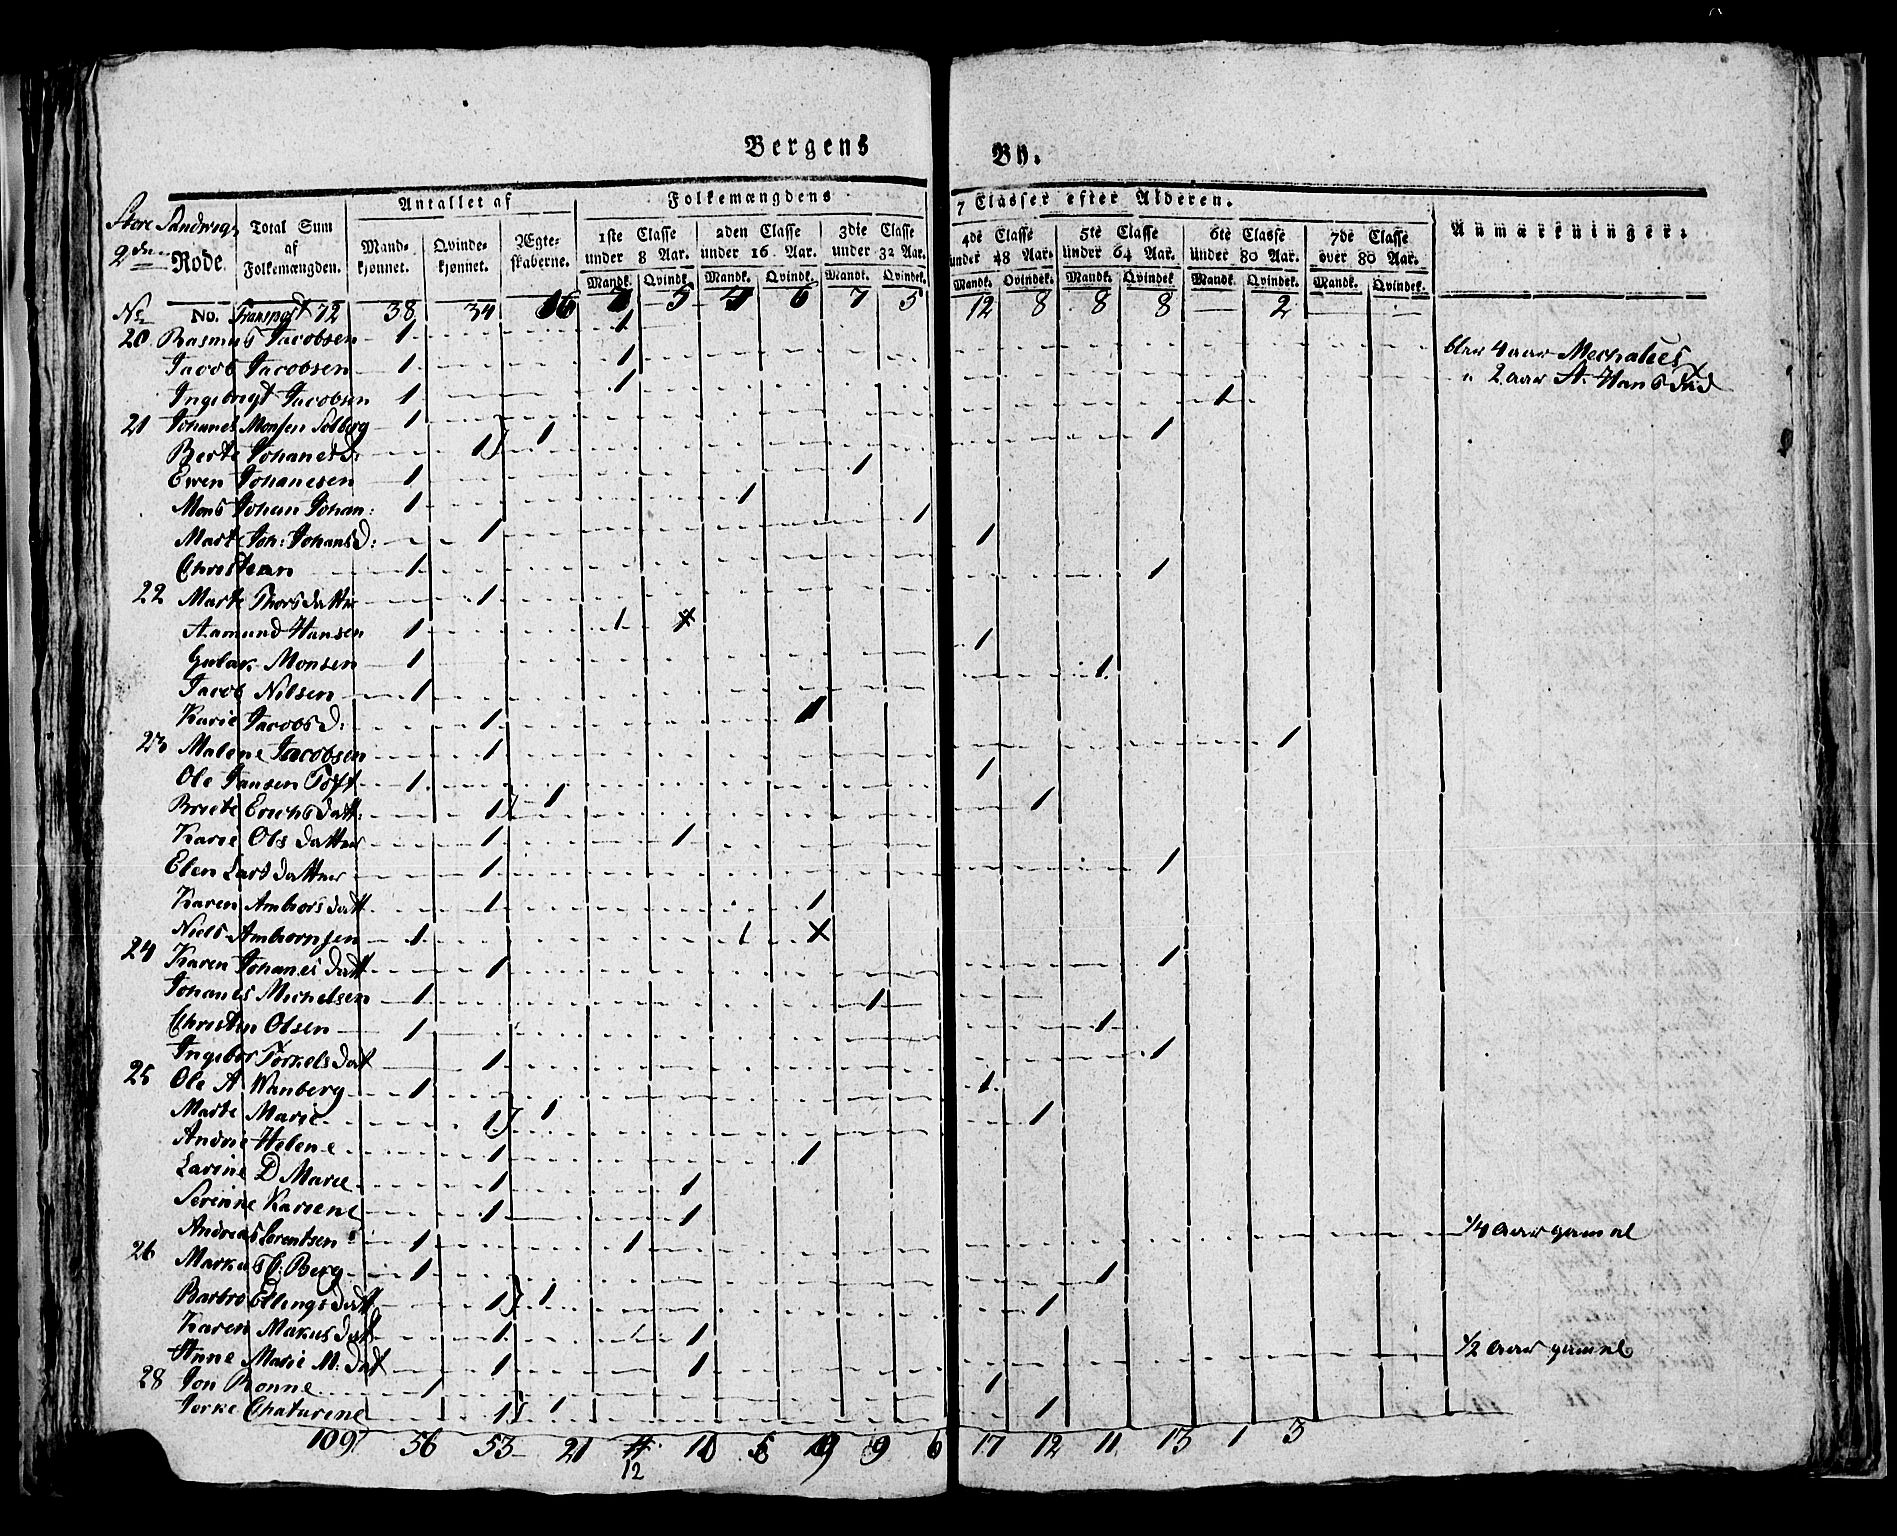 Bergens By.
Store Sandwigs 2den Rode.
Total Sum af Folkemængden.
Antallet af
Mandkjønnet. Qvindekjønnet. Ægteskaberne.
Folkemængdens 7 Classer efter Alderen.
1ste Classe under 8 Aar. 2den Classe under 16 Aar. 3die Classe under 32 Aar. 4de Classe under 48 Aar. 5te Classe under 64 Aar. 6te Classe under 80 Aar. 7de Classe over 80 Aar.
Anmærkninger.
Mandk. Qvindk. Mandk. Qvindk. Mandk. Qvindek. Mandk. Qvindek. Mandk. Qvindk. Mandk. Qvindek. Mandk. Qvindek.
No. No. Transport 72 38 34 16 7 5 4 6 7 5 12 8 8 8 — 2 — —
20 Rasmus Jacobsen 1 1
Jacob Jacobsen 1 1 4 aar
Ingebrigt Jacobsen 1 1 " 2 aar
21 Johanes Monsen Solberg 1 1
Berte Johanesd: 1 1 1
Ewen Johanesen 1 1
Mons Johan Johan: 1 1
Marte Joh: Johansd: 1 1
Christian 1 1
22 Marte Thorsdatter 1 1
Aamund Hansen 1 1
Gulak Monsen 1 1
Jacob Nilsen 1 1
Karie Jacobsd: 1 1
23 Malene Jacobsen 1 1
Ole Jansen Toft 1 1
Briete Erichsdatt: 1 1 1
Karie Olsdatter 1 1
Elen Larsdatter 1 1
Karen Amborsdatt 1 1
Niels Ambornsen 1 1
24 Karen Johanesdatt 1 1
Johanes Michelsen 1 1
Christen Olsen 1 1
Ingebor Torkelsdat 1 1
25 Ole A Wanberg 1 1
Marte Marie 1 1 1
Andrie Helene 1 1
Larine D Marie 1 1
Serinne Kariene 1 1
Andreas Lorentsen 1 1 1/4 aar gammel
26 Markus C: Berg 1 1
Barbro Ellingsdatt 1 1 1
Karen Makusdatt 1 1
Anne Marie M. dat 1 1 1/2 aar gammel
28 Jon Rønne 1 1
Jerke Chatarine 1 1 1
109 56 53 21 11 10 5 9 9 6 17 12 11 13 1 3
12